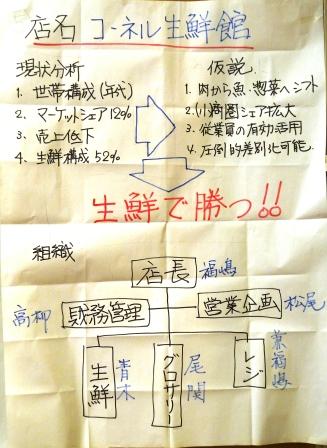 店名 コーネル生鮮館
現状分析
1. 世帯構成(年代)
2. マーケットシェア12%
3. 売上低下
4. 生鮮構成 52%
仮説
1. 肉から魚・惣菜へシフト
2. 小商圏シェア拡大
3. 従業員の有効活用
4. 圧倒的差別化可能
生鮮で勝つ!!
組織
店長 福嶋
高柳 財務管理 営業企画 松尾
生鮮 青木
グロサリー 尾関
レジ 兼福嶋